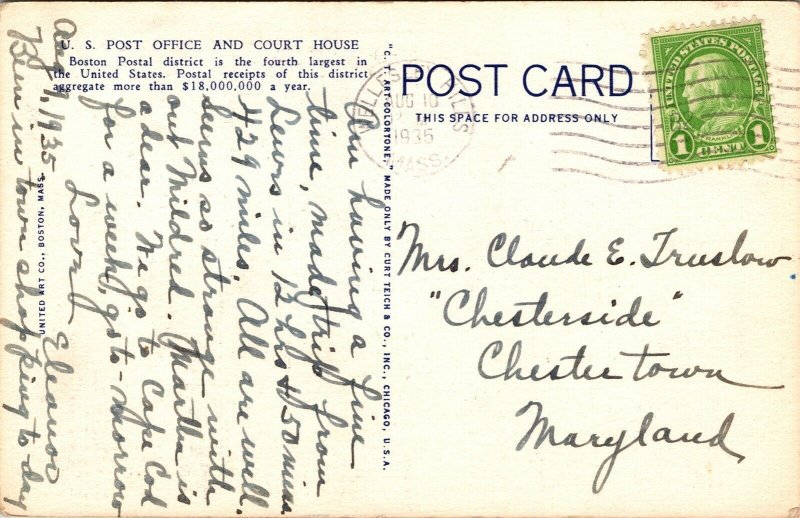 U. S. POST OFFICE AND COURT HOUSE
Boston Postal district is the fourth largest in
the United States. Postal receipts of this district
aggregate more than $18,000,000 a year.
Am having a fine
time, made trip from
Lewis in 12 hrs & 50 mins
429 miles. All are well.
Seems so strange with
out Mildred. Martha is
a dear. We go to Cape Cod
for a week, go to-morrow
Love, Eleanor
Aug 9, 1935
Been in town shopping to day
UNITED ART CO., BOSTON, MASS.
"C. T. ART-COLORTONE," MADE ONLY BY CURT TEICH & CO., INC., CHICAGO, U.S.A.
POST CARD
THIS SPACE FOR ADDRESS ONLY
AUG 10
1935
MASS.
UNITED STATES POSTAGE
FRANKLIN
1 CENT 1
Mrs. Claude E. Truslow
"Chesterside"
Chestertown
Maryland